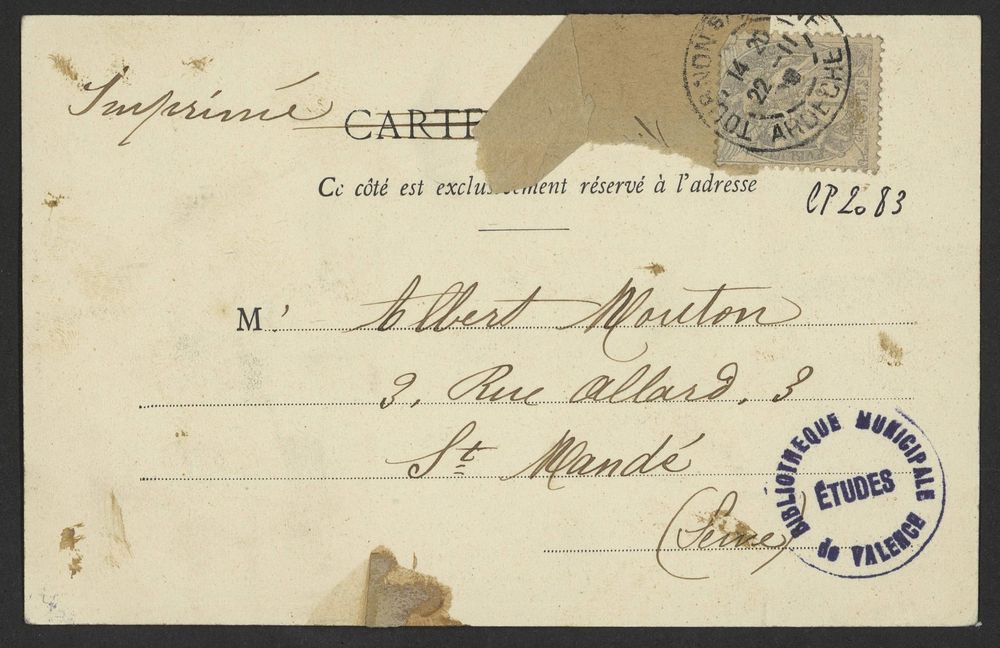 Imprimé
CARTE
TOURNON S
ARDÈCHE
14 20
22 -11
CP 2083
Ce côté est exclusivement réservé à l'adresse
M. Albert Mouton
3, Rue Allard, 3
St Mandé
(Seine)
BIBLIOTHEQUE MUNICIPALE
ÉTUDES
de VALENCE